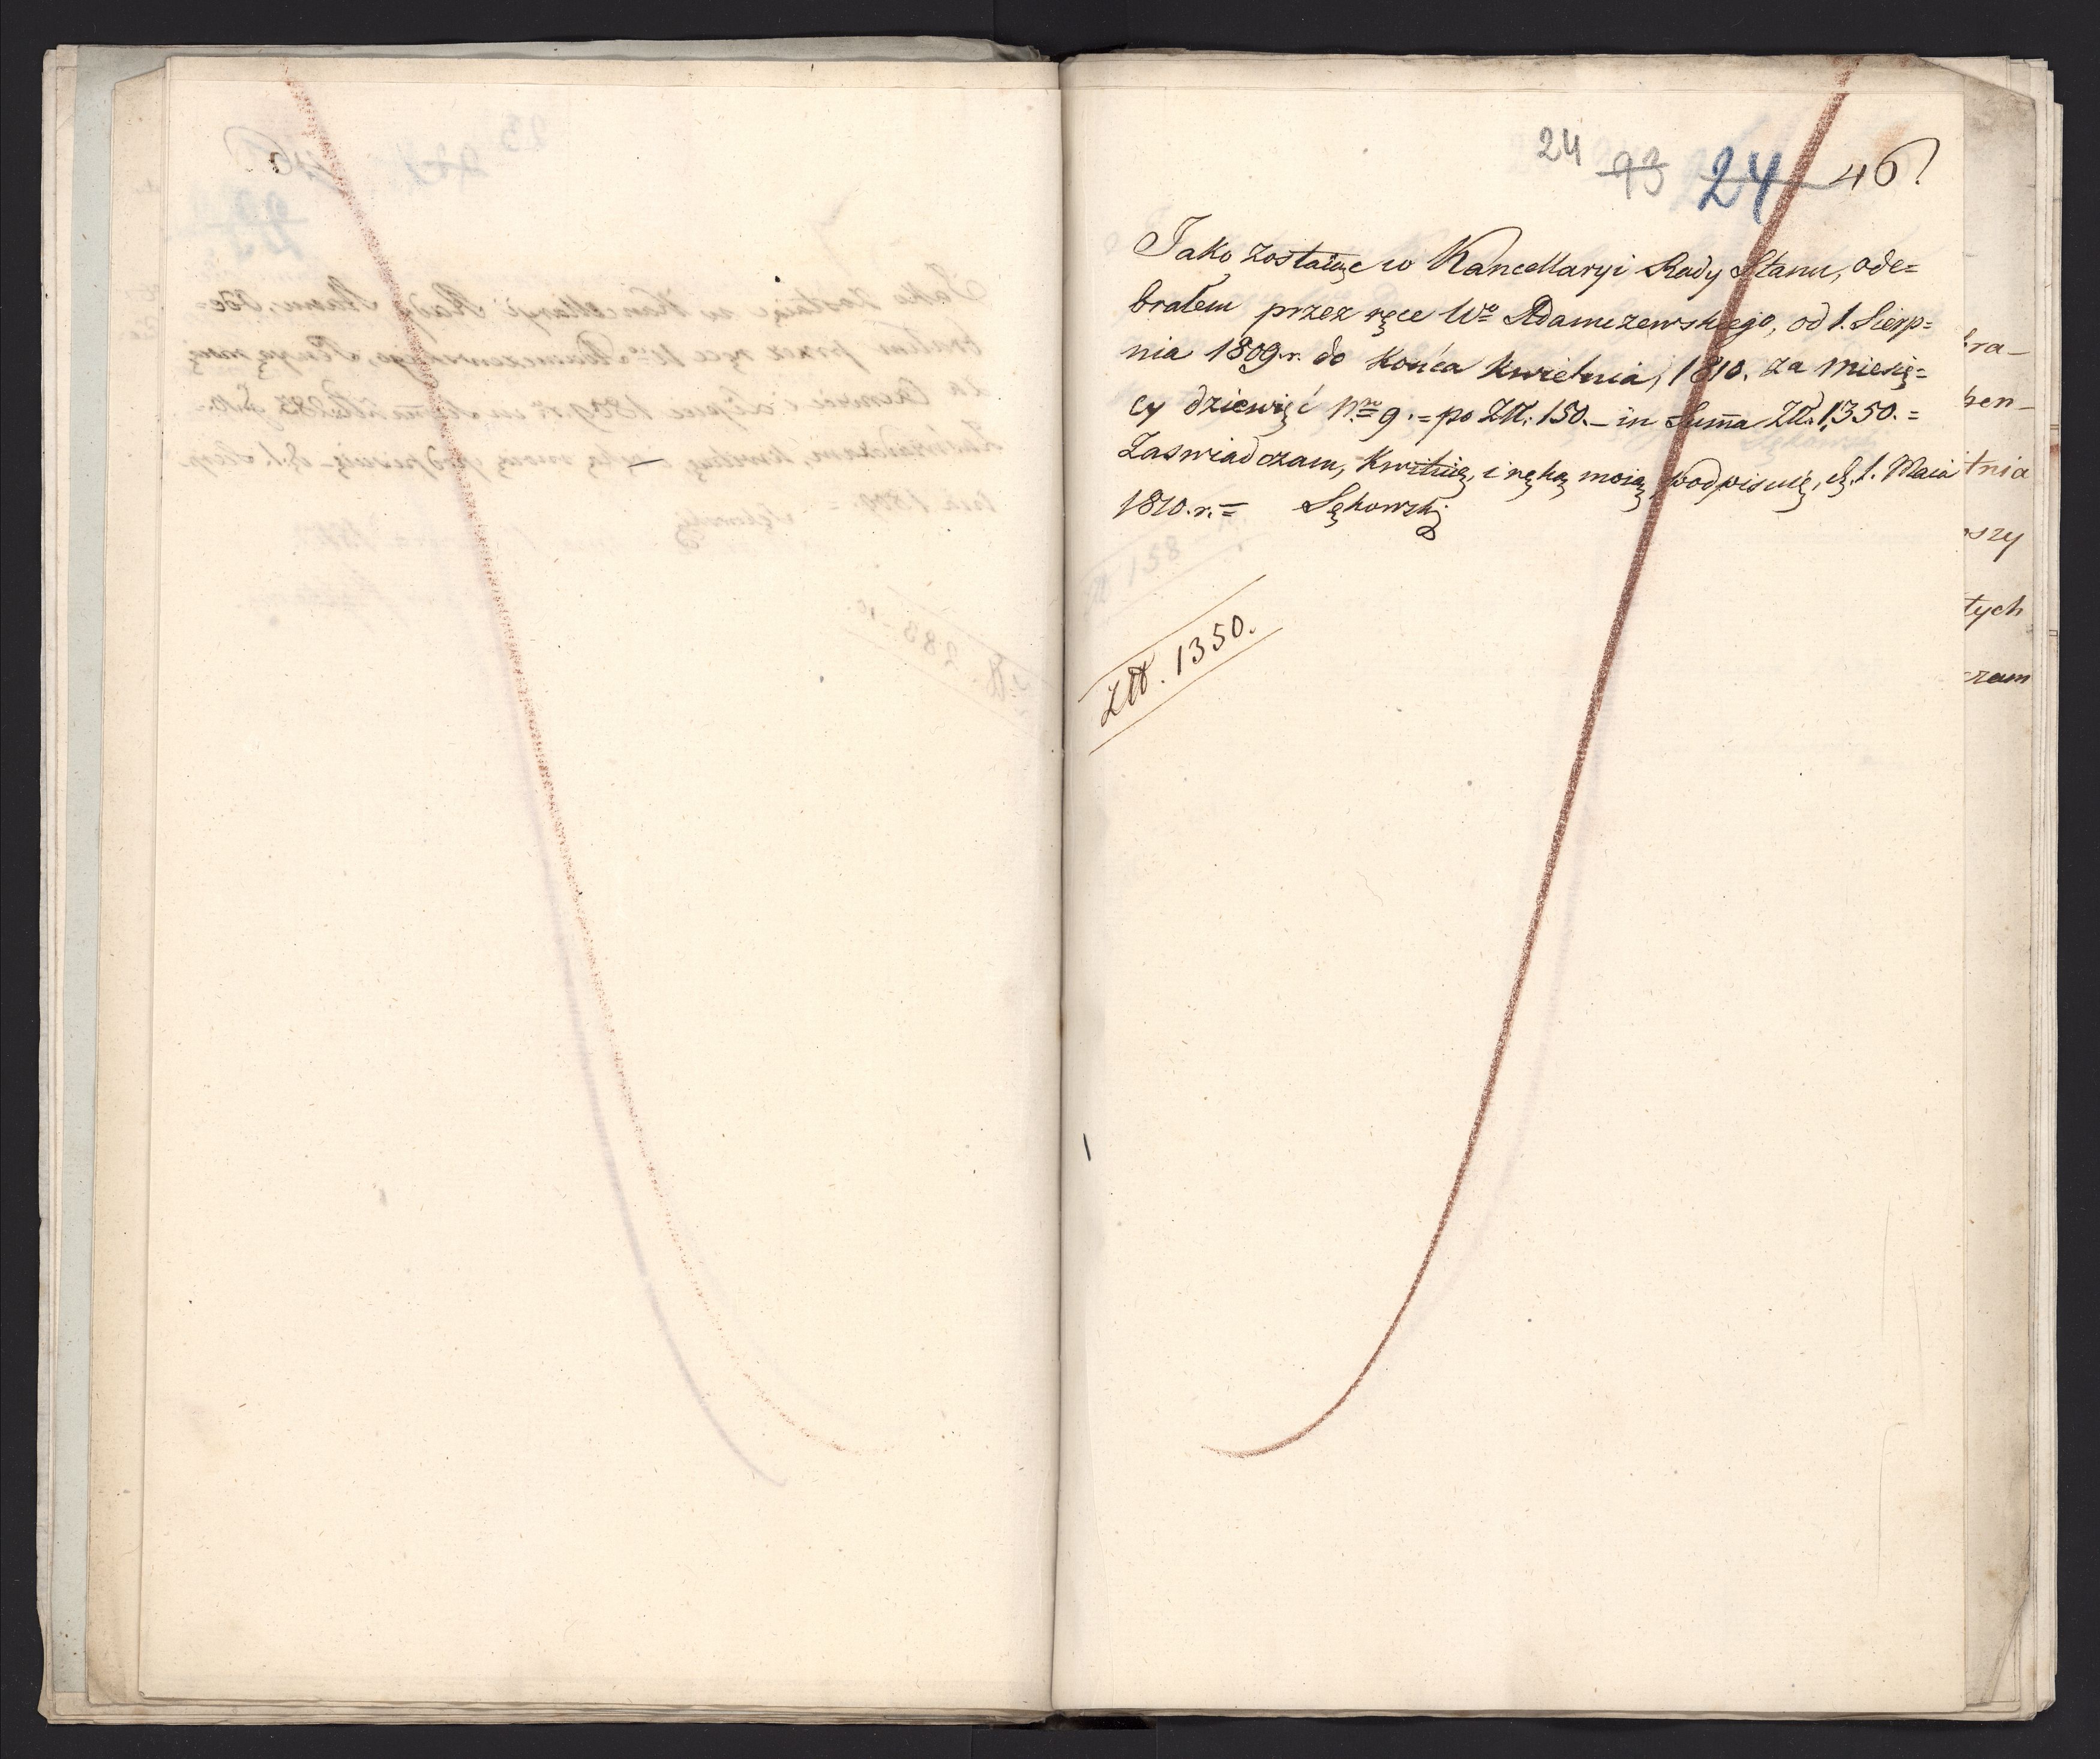 24 93 24 46.
Jako zostaiąc w Kancellaryi Rady Stanu, ode=
brałem przez ręce Wo Adamczewskiego, od 1. Sierp=
nia 1809. r. do końca kwietnia, 1810. za miesię=
cy dziewięć Nro 9. = po Złt. 150. – in Summa Złt. 1,350. =
Zaswiadczam, kwituię, i ręką moią podpisuię, d. 1. Maia
1810. r. = Sękowski
Złt. 1350.
bra–
pen–
tnia
oszy
tych
czam